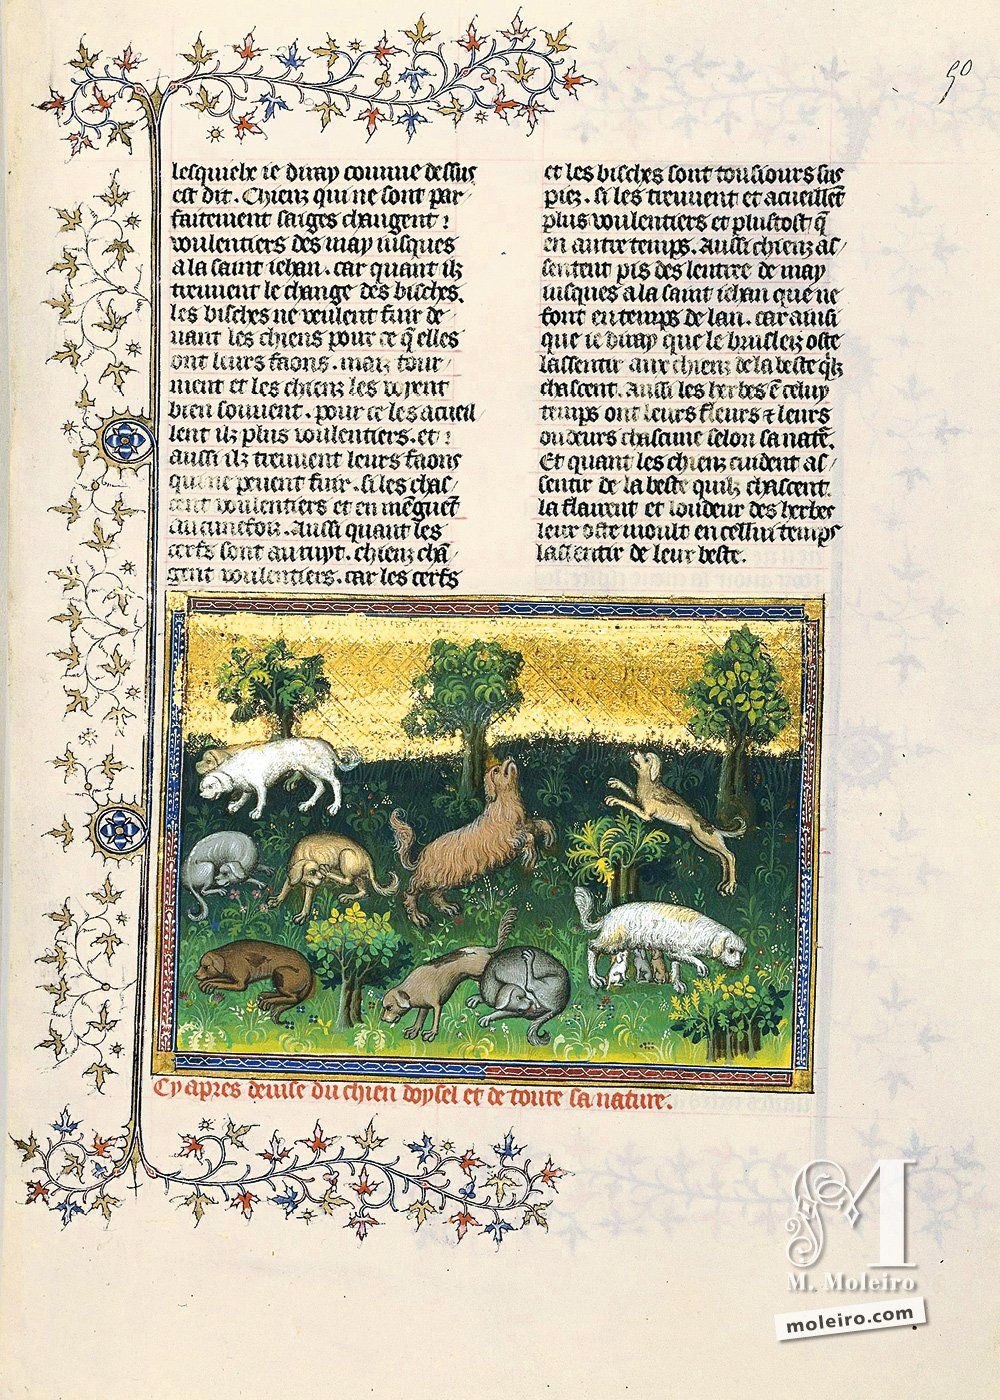 90
lesquielx ie diray comme dessus
est dit. Chienz qui ne sont par
faitement saiges changent
voulentiers des may iusques
a la saint iehan. car quant ilz
treuvent le change des bisches.
les bisches ne veulent fuir de
uant les chiens pour ce q̄ elles
ont leurs faons. maiz tour
nient et les chienz les voyent
bien souvent. pour ce les acueil
lent ilz plus voulentiers. et
aussi ilz treuvent leurs faons
qui ne peuent fuir. si les chas
cent voulentiers et en mēguet̄
aucunefoiz. Aussi quant les
cerfs sont au ruyt. chienz chā
gent voulentiers. car les cerfs
et les bisches sont tousiours sus
piez. si les treuvent et acueillēt
plus voulentiers et plustost q̄
en autre temps. Aussi chienz as
sentent pis des lentree de may
iusques a la saint iehan que ne
font en temps de lan. car ainsi
que ie diray que le brusleiz oste
lassentir aux chienz de la beste q̄lz
chascent. Aussi les herbes ē celuy
temps ont leurs fleurs et leurs
oudeurs chascune selon sa natē.
Et quant les chienz cuident as
sentir de la beste quilz chascent.
la flairent et loudeur des herbes
leur oste moult en cellui temps
lassentir de leur beste.
Cy apres devise du chien doysel et de toute sa nature.
M
M. Moleiro
moleiro.com